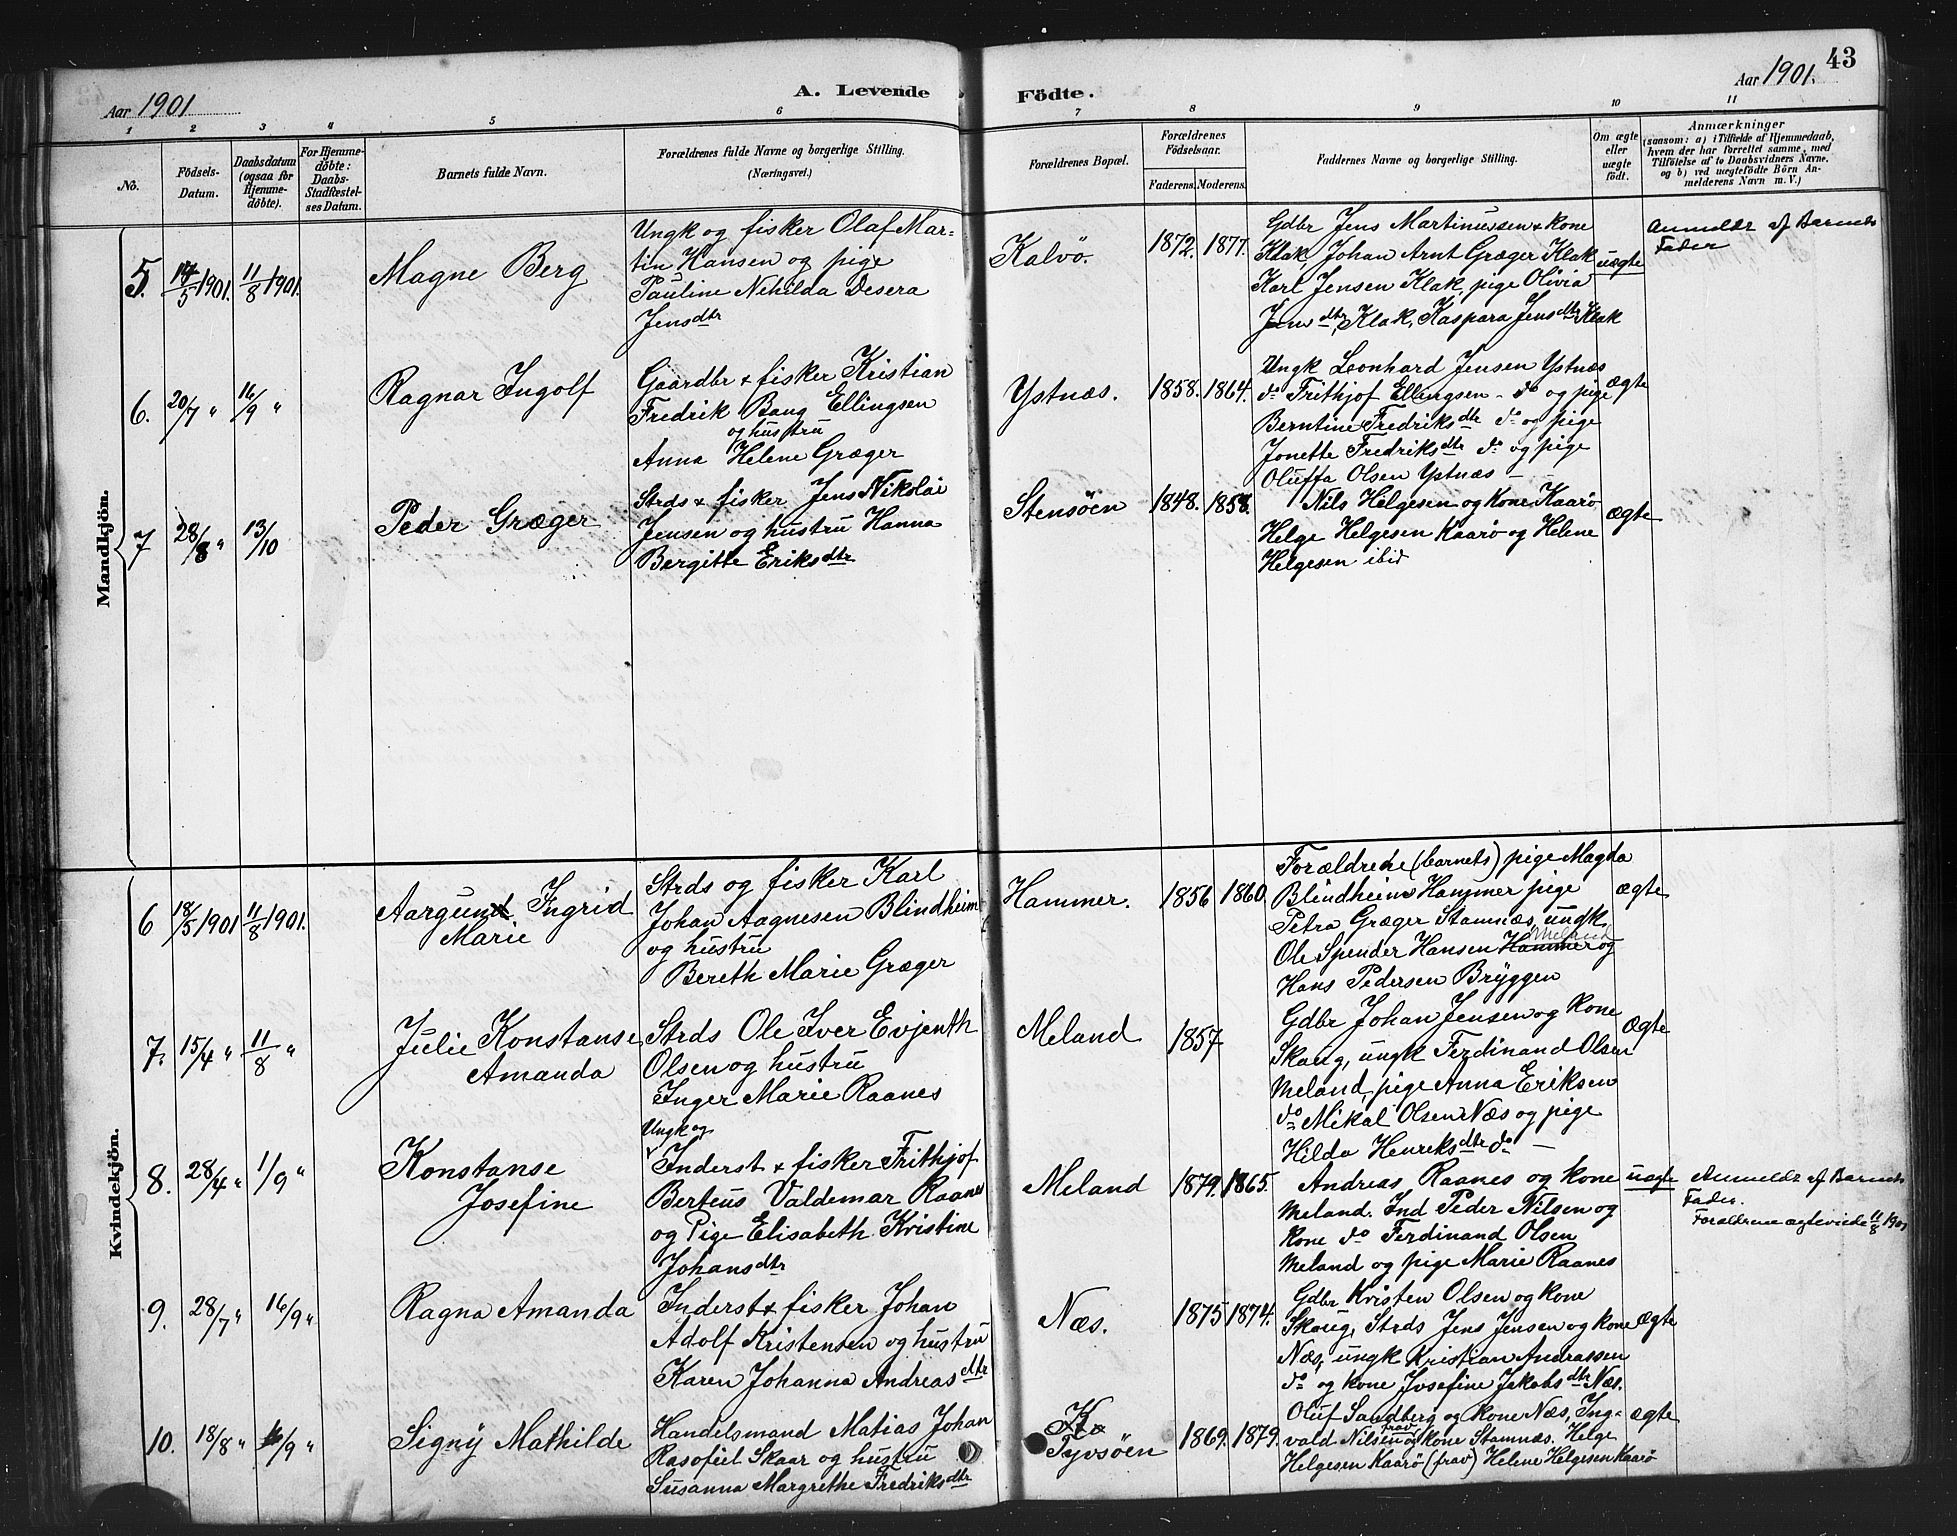 43
Aar 1901
A. Levende
Födte.
Aar 1901.
1 2 3 4 5 6 7 8 9 10 11
No.
Födsels-
Datum.
Daabsdatum
(ogsaa for
Hjemme-
döbte).
For Hjemme-
döbte:
Daabs-
Stadfæstel-
ses Datum.
Barnets fulde Navn.
Forældrenes fulde Navne og borgerlige Stilling.
(Næringsvei.)
Forældrenes Bopæl.
Forældrenes
Födselsaar.
Faderens. Moderens.
Faddernes Navne og borgerlige Stilling.
Om ægte
eller
uægte
födt.
Anmærkninger
(saasom: a) i Tilfælde af Hjemmedaab,
hvem der har forrettet samme, med
Tilföielse af to Daabsvidners Navne,
og b) ved uægtefödte Börn An-
melderens Navn m. V.)
Mandkjön.
5. 14/5 1901. 11/8 1901.
Magne Berg
Ungk og fisker Olaf Mar-
tin Hansen og pige
Pauline Nehilda Desera
Jensdtr
Kalvö. 1872. 1877.
Gdbr Jens Martinussen & kone
Klak, Johan Arnt Græger Klak
Karl Jensen Klak, pige Olivia
Jensdtr, Klak, Kaspara Jensdtr Klak
uægte
Anmeldt af Barnets
Fader
6. 20/7 " 16/9 "
Ragnar Ingolf
Gaardbr & fisker Kristian
Fredrik Bang Ellingsen
og hustru
Anna Helene Græger
Ystnæs. 1858. 1864.
Ungk Leonhard Jensen Ystnæs
do Frithjof Ellingsen - do og pige
Berntine Fredriksdtr do og pige
Jonette Fredriksdtr do og pige
Oluffa Olsen Ystnæs -
ægte
7 28/8 " 13/10
Peder Græger
Strds & fisker Jens Nikolai
Jensen og hustru Hanna
Bergitte Eriksdtr
Stensöen 1848. 1858.
Nils Helgesen og kone Kaarö
Helge Helgesen Kaarö og Helene
Helgesen ibid
ægte
Kvindekjön.
6 18/5 1901 11/8 1901.
Aargunt. Ingrid
Marie
Strds og fisker Karl
Johan Aagnesen Blindheim
og hustru
Bereth Marie Græger
Hammer. 1856 1860.
Forældrene (barnets) pige Magda
Blindheim Hammer pige
Petra Græger Stamnæs, ungk
Meland
Ole Spender Hansen Hammer og
Hans Pedersen Bryggen
ægte
7. 15/4 " 11/8 "
Julie Konstanse
Amanda
Strds Ole Iver Evjenth
Olsen og hustru
Inger Marie Raanes
Meland 1857
Gdbr Johan Jensen og kone
Skaug, ungk Ferdinand Olsen
Meland, pige Anna Eriksen
do Mikal Olsen Næs og pige
Hilda Henriksdtr do -
ægte
8. 28/4 " 1/9 "
Konstanse
Josefine
Ungk og
Inderst & fisker Frithjof
Berteus Valdemar Raanes
og Pige Elisabeth Kristine
Johansdtr
Meland 1879. 1865.
Andreas Raanes og kone
Meland. Ind Peder Nilsen og
kone do Ferdinand Olsen
Meland og pige Marie Raanes
uægte
Anmeldt af Barnets
Fader.
Forældrene ægteviede 11/8 1901
9. 28/7 " 16/9 "
Ragna Amanda
Inderst & fisker Johan
Adolf Kristensen og hustru
Karen Johanna Andreasdtr
Næs. 1875 1874.
Gdbr Kristen Olsen og kone
Skaug, Strds Jens Jensen og kone
Næs, ungk Kristian Andreassen
do og kone Josefine Jakobsdtr Næs.
ægte
10. 18/8 " 16/9 "
Signy Mathilde
Handelsmand Matias Johan
Rasofiel Skaar og hustru
Susanna Margrethe Fredriksdtr
Tyvsöen 1869. 1879.
Oluf Sandberg og kone Næs, Ing-
vald Nilsen og kone Stamnæs. Helge
Helgesen Kaarö (frav) Helene Helgesen Kaarö
ægte